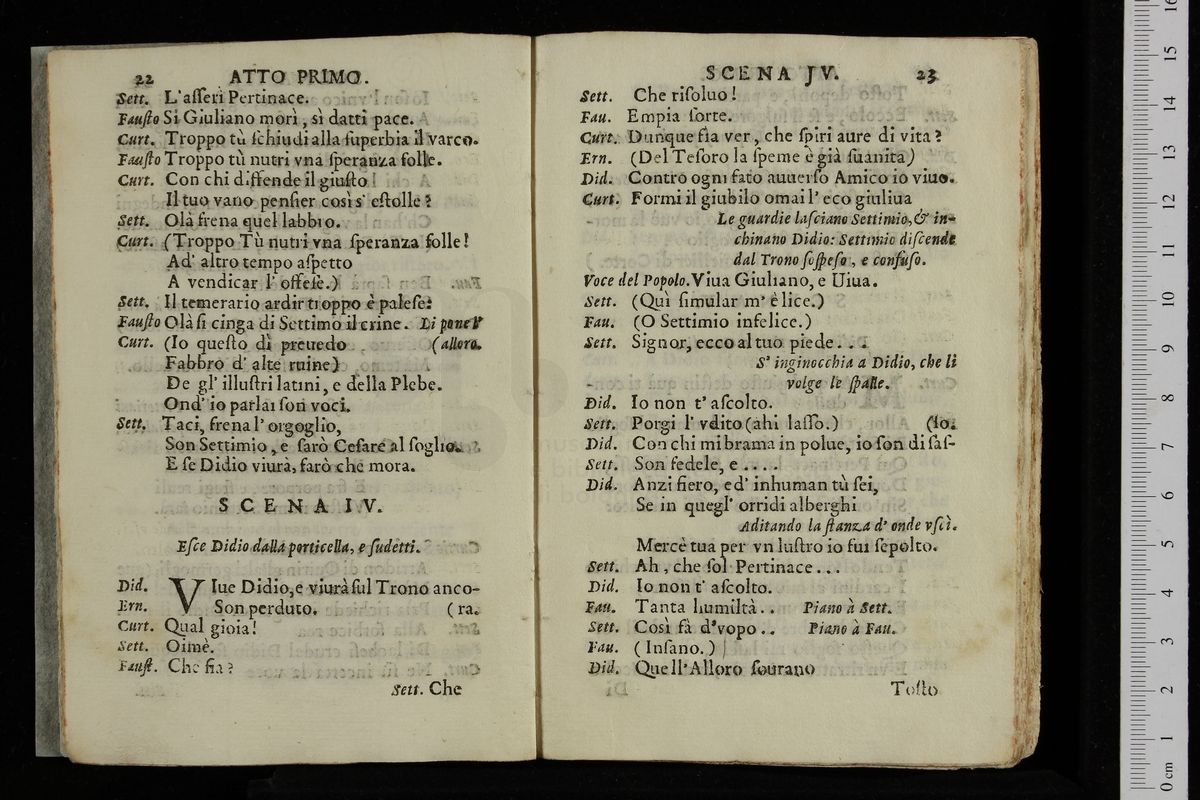 22 ATTO PRIMO.
Sett. L'asserì Pertinace.
Fausto Sì Giuliano morì, sì datti pace.
Curt. Troppo tù schiudi alla superbia il varco.
Fausto Troppo tù nutri vna speranza folle.
Curt. Con chi diffende il giusto
Il tuo vano pensier così s' estolle?
Sett. Olà frena quel labbro.
Curt. (Troppo Tù nutri vna speranza folle!
Ad' altro tempo aspetto
A vendicar l' offese.)
Sett. Il temerario ardir troppo è palese:
Fausto Olà si cinga di Settimo il crine. Li pone l'
Curt. (Io questo dì preuedo (alloro.
Fabbro d' alte ruine)
De gl' illustri latini, e della Plebe.
Ond' io parlai son voci.
Sett. Taci, frena l' orgoglio,
Son Settimio, e sarò Cesare al soglio.
E se Didio viurà, farò che mora.
SCENA IV.
Esce Didio dalla porticella, e sudetti.
Did. VIue Didio, e viurà sul Trono anco-
Ern. Son perduto. (ra.
Curt. Qual gioia!
Sett. Oimè.
Faust. Che fia?
Sett. Che
SCENA JV. 23
Sett. Che risoluo!
Fau. Empia sorte.
Curt. Dunque fia ver, che spiri aure di vita?
Ern. (Del Tesoro la speme è già suanita)
Did. Contro ogni fato auuerso Amico io viuo.
Curt. Formi il giubilo omai l' eco giuliua
Le guardie lasciano Settimio, & in-
chinano Didio: Settimio discende
dal Trono sospeso, e confuso.
Voce del Popolo. Viua Giuliano, e Uiua.
Sett. (Quì simular m' è lice.)
Fau. (O Settimio infelice.)
Sett. Signor, ecco al tuo piede...
S' inginocchia a Didio, che li
volge le spalle.
Did. Io non t' ascolto.
Sett. Porgi l' vdito (ahi lasso.) (so.
Did. Con chi mi brama in polue, io son di sas-
Sett. Son fedele, e ....
Did. Anzi fiero, ed' inhuman tù sei,
Se in quegl' orridi alberghi
Aditando la stanza d' onde vscì.
Mercè tua per vn lustro io fui sepolto.
Sett. Ah, che sol Pertinace...
Did. Io non t' ascolto.
Fau. Tanta humiltà.. Piano à Sett.
Sett. Così fà d'vopo.. Piano à Fau.
Fau. (Insano.)
Did. Quell'Alloro sourano
Tosto
0 cm 1 2 3 4 5 6 7 8 9 10 11 12 13 14 15 16